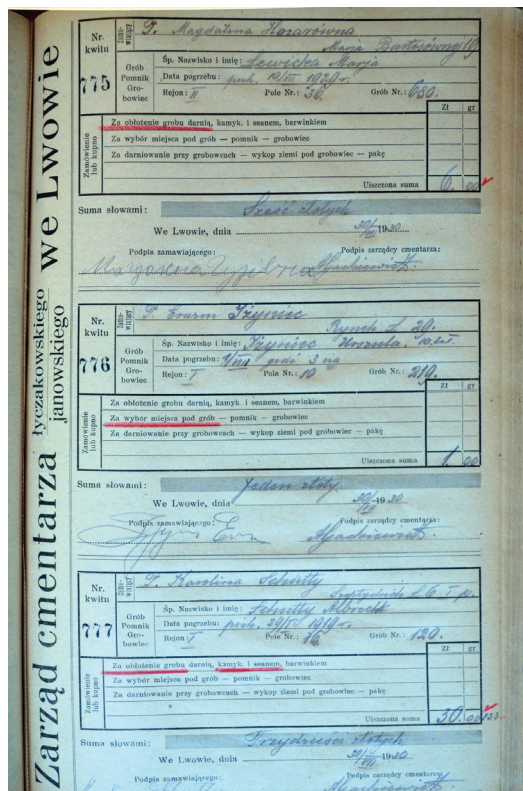 Zarząd cmentarza łyczakowskiego janowskiego we Lwowie
Nr. kwitu
775
Zama-wiający
P. Magdalina
Marja Bartosówny 19
Grób
Pomnik
Gro-
bowiec
Śp. Nazwisko i imię: Lewecka Marja
Data pogrzebu: poch. 1929 r.
Rejon: II Pole Nr.: 36. Grób Nr.: 650.
Zamówienie lub kupno
Zł gr
Za obłożenie grobu darnią, kamyk. i seanem, barwinkiem
Za wybór miejsca pod grób — pomnik — grobowiec
Za darniowanie przy grobowcach — wykop ziemi pod grobowiec — pakę
Uiszczona suma 6. 00
Suma słowami: Sześć złotych
We Lwowie, dnia 30/ 1930
Podpis zamawiającego: Podpis zarządcy cmentarza:
Nr. kwitu
776
Zama-wiający
P. Erazm Iżyniec
Rynek L 29.
Grób
Pomnik
Gro-
bowiec
Śp. Nazwisko i imię: Iżyniec Urszula. 10 lat.
Data pogrzebu: 1/VIII godz 3
Rejon: I Pole Nr.: 10 Grób Nr.: 219.
Zamówienie lub kupno
Zł gr
Za obłożenie grobu darnią, kamyk. i seanem, barwinkiem
Za wybór miejsca pod grób — pomnik — grobowiec
Za darniowanie przy grobowcach — wykop ziemi pod grobowiec — pakę
Uiszczona suma 1. 00
Suma słowami: Jeden złoty
We Lwowie, dnia 30/ 1930
Podpis zamawiającego: Podpis zarządcy cmentarza:
Nr. kwitu
777
Zama-wiający
P. Karolina Schutty
L 6 I p.
Grób
Pomnik
Gro-
bowiec
Śp. Nazwisko i imię: Schutty Albrecht
Data pogrzebu: poch. 1919 r.
Rejon: I Pole Nr.: 16 Grób Nr.: 120.
Zamówienie lub kupno
Zł gr
Za obłożenie grobu darnią, kamyk. i seanem, barwinkiem
Za wybór miejsca pod grób — pomnik — grobowiec
Za darniowanie przy grobowcach — wykop ziemi pod grobowiec — pakę
Uiszczona suma 30. 00
Suma słowami: Trzydzieści złotych
We Lwowie, dnia 30/ 1930
Podpis zamawiającego: Podpis zarządcy cmentarza: